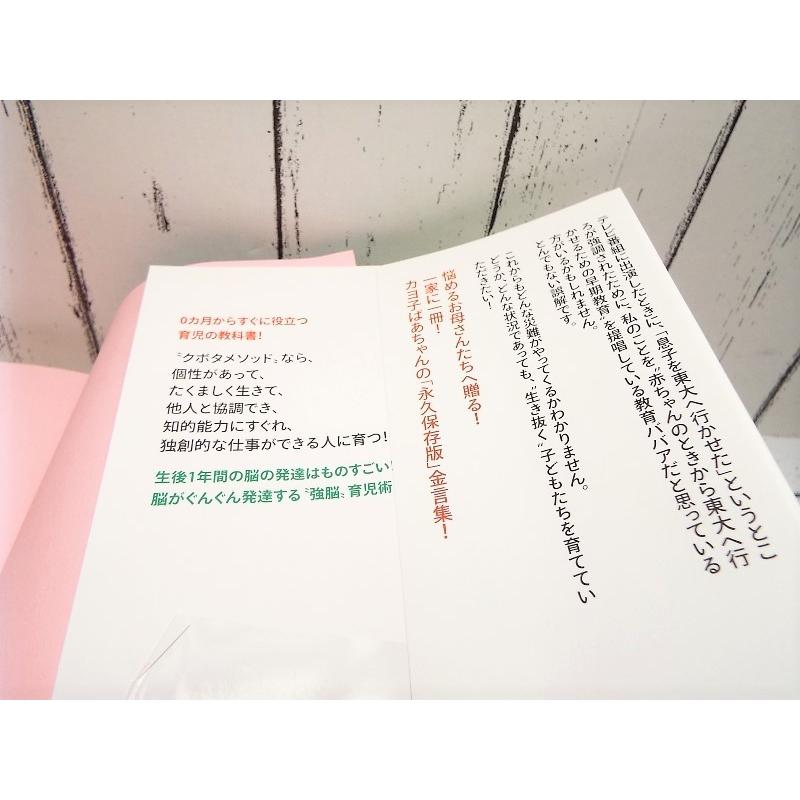 0カ月からすぐに役立つ
育児の教科書！
〝クボタメソッド〟なら、
個性があって、
たくましく生きて、
他人と協調でき、
知的能力にすぐれ、
独創的な仕事ができる人に育つ！
生後1年間の脳の発達はものすごい！
脳がぐんぐん発達する〝強脳〟育児術
テレビ番組に出演したときに、「息子を東大へ行かせた」というとこ
ろが強調されたために、私のことを〝赤ちゃんのときから東大へ行
かせるための早期教育〟を提唱している教育ババアだと思っている
方がいるかもしれません。
とんでもない誤解です。
これからもどんな災難がやってくるかわかりません。
どうか、どんな状況であっても、〝生き抜く〟子どもたちを育ててい
ただきたい！
悩めるお母さんたちへ贈る！
一家に一冊！
カヨ子ばあちゃんの「永久保存版」金言集！